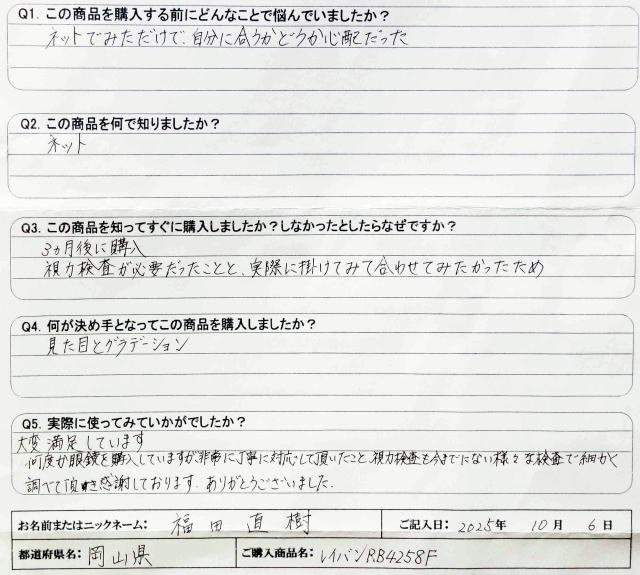 Q1. この商品を購入する前にどんなことで悩んでいましたか？
ネットでみただけで、自分に合うかどうか心配だった
Q2. この商品を何で知りましたか？
ネット
Q3. この商品を知ってすぐに購入しましたか？しなかったとしたらなぜですか？
3ヵ月後に購入
視力検査が必要だったことと、実際に掛けてみて合わせてみたかったため
Q4. 何が決め手となってこの商品を購入しましたか？
見た目とグラデーション
Q5. 実際に使ってみていかがでしたか？
大変満足しています
何度か眼鏡を購入していますが非常に丁寧に対応して頂いたこと、視力検査も今までにない様々な検査で細かく
調べて頂き感謝しております。ありがとうございました。
お名前またはニックネーム： 福田直樹 ご記入日： 2025年 10月 6日
都道府県名： 岡山県 ご購入商品名： レイバンRB4258F